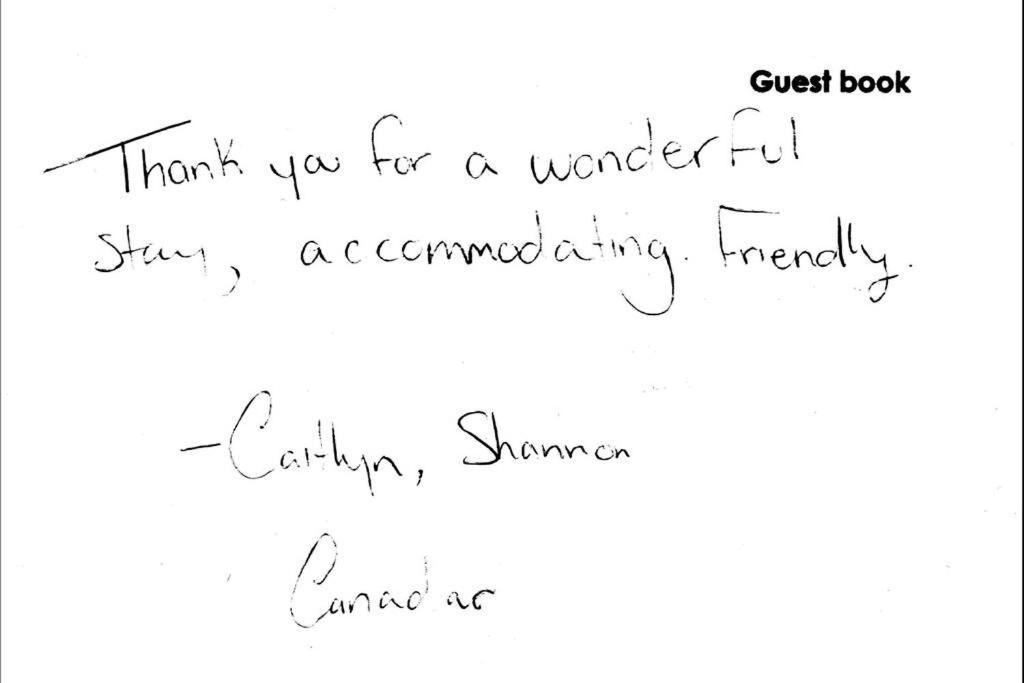 Guest book
Thank you for a wonderful
stay, accommodating. Friendly.
- Caitlyn, Shannon
Canada